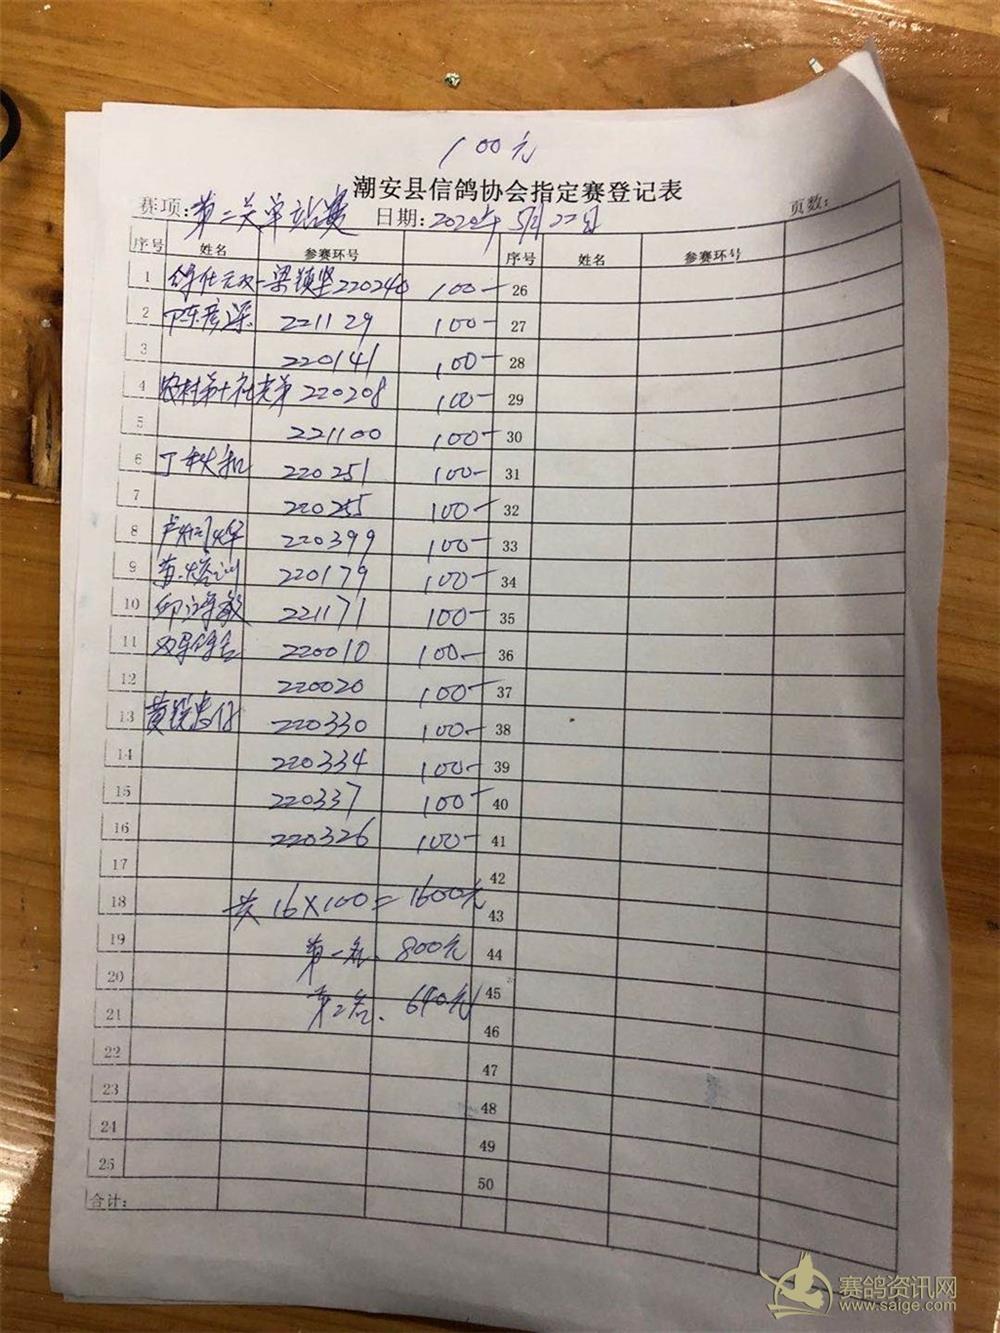 100元
潮安县信鸽协会指定赛登记表
赛项:第二关单站赛 日期:2020年5月22日 页数:
序号 姓名 参赛环号 序号 姓名 参赛环号
1 梁镇坚 220240 100- 26
2 陈彦深 221129 100- 27
3 220141 100- 28
4 农村第十社老弟 220208 100- 29
5 221100 100- 30
6 丁秋和 220251 100- 31
7 220255 100- 32
8 220399 100- 33
9 220179 100- 34
10 221171 100- 35
11 220010 100- 36
12 220020 100- 37
13 220330 100- 38
14 220334 100- 39
15 220337 100- 40
16 220326 100- 41
17 42
18 共16×100=1600元 43
19 第一名、800元 44
20 45
21 第二名、640元 46
22 47
23 48
24 49
25 50
合计:
赛鸽资讯网
www.saige.com